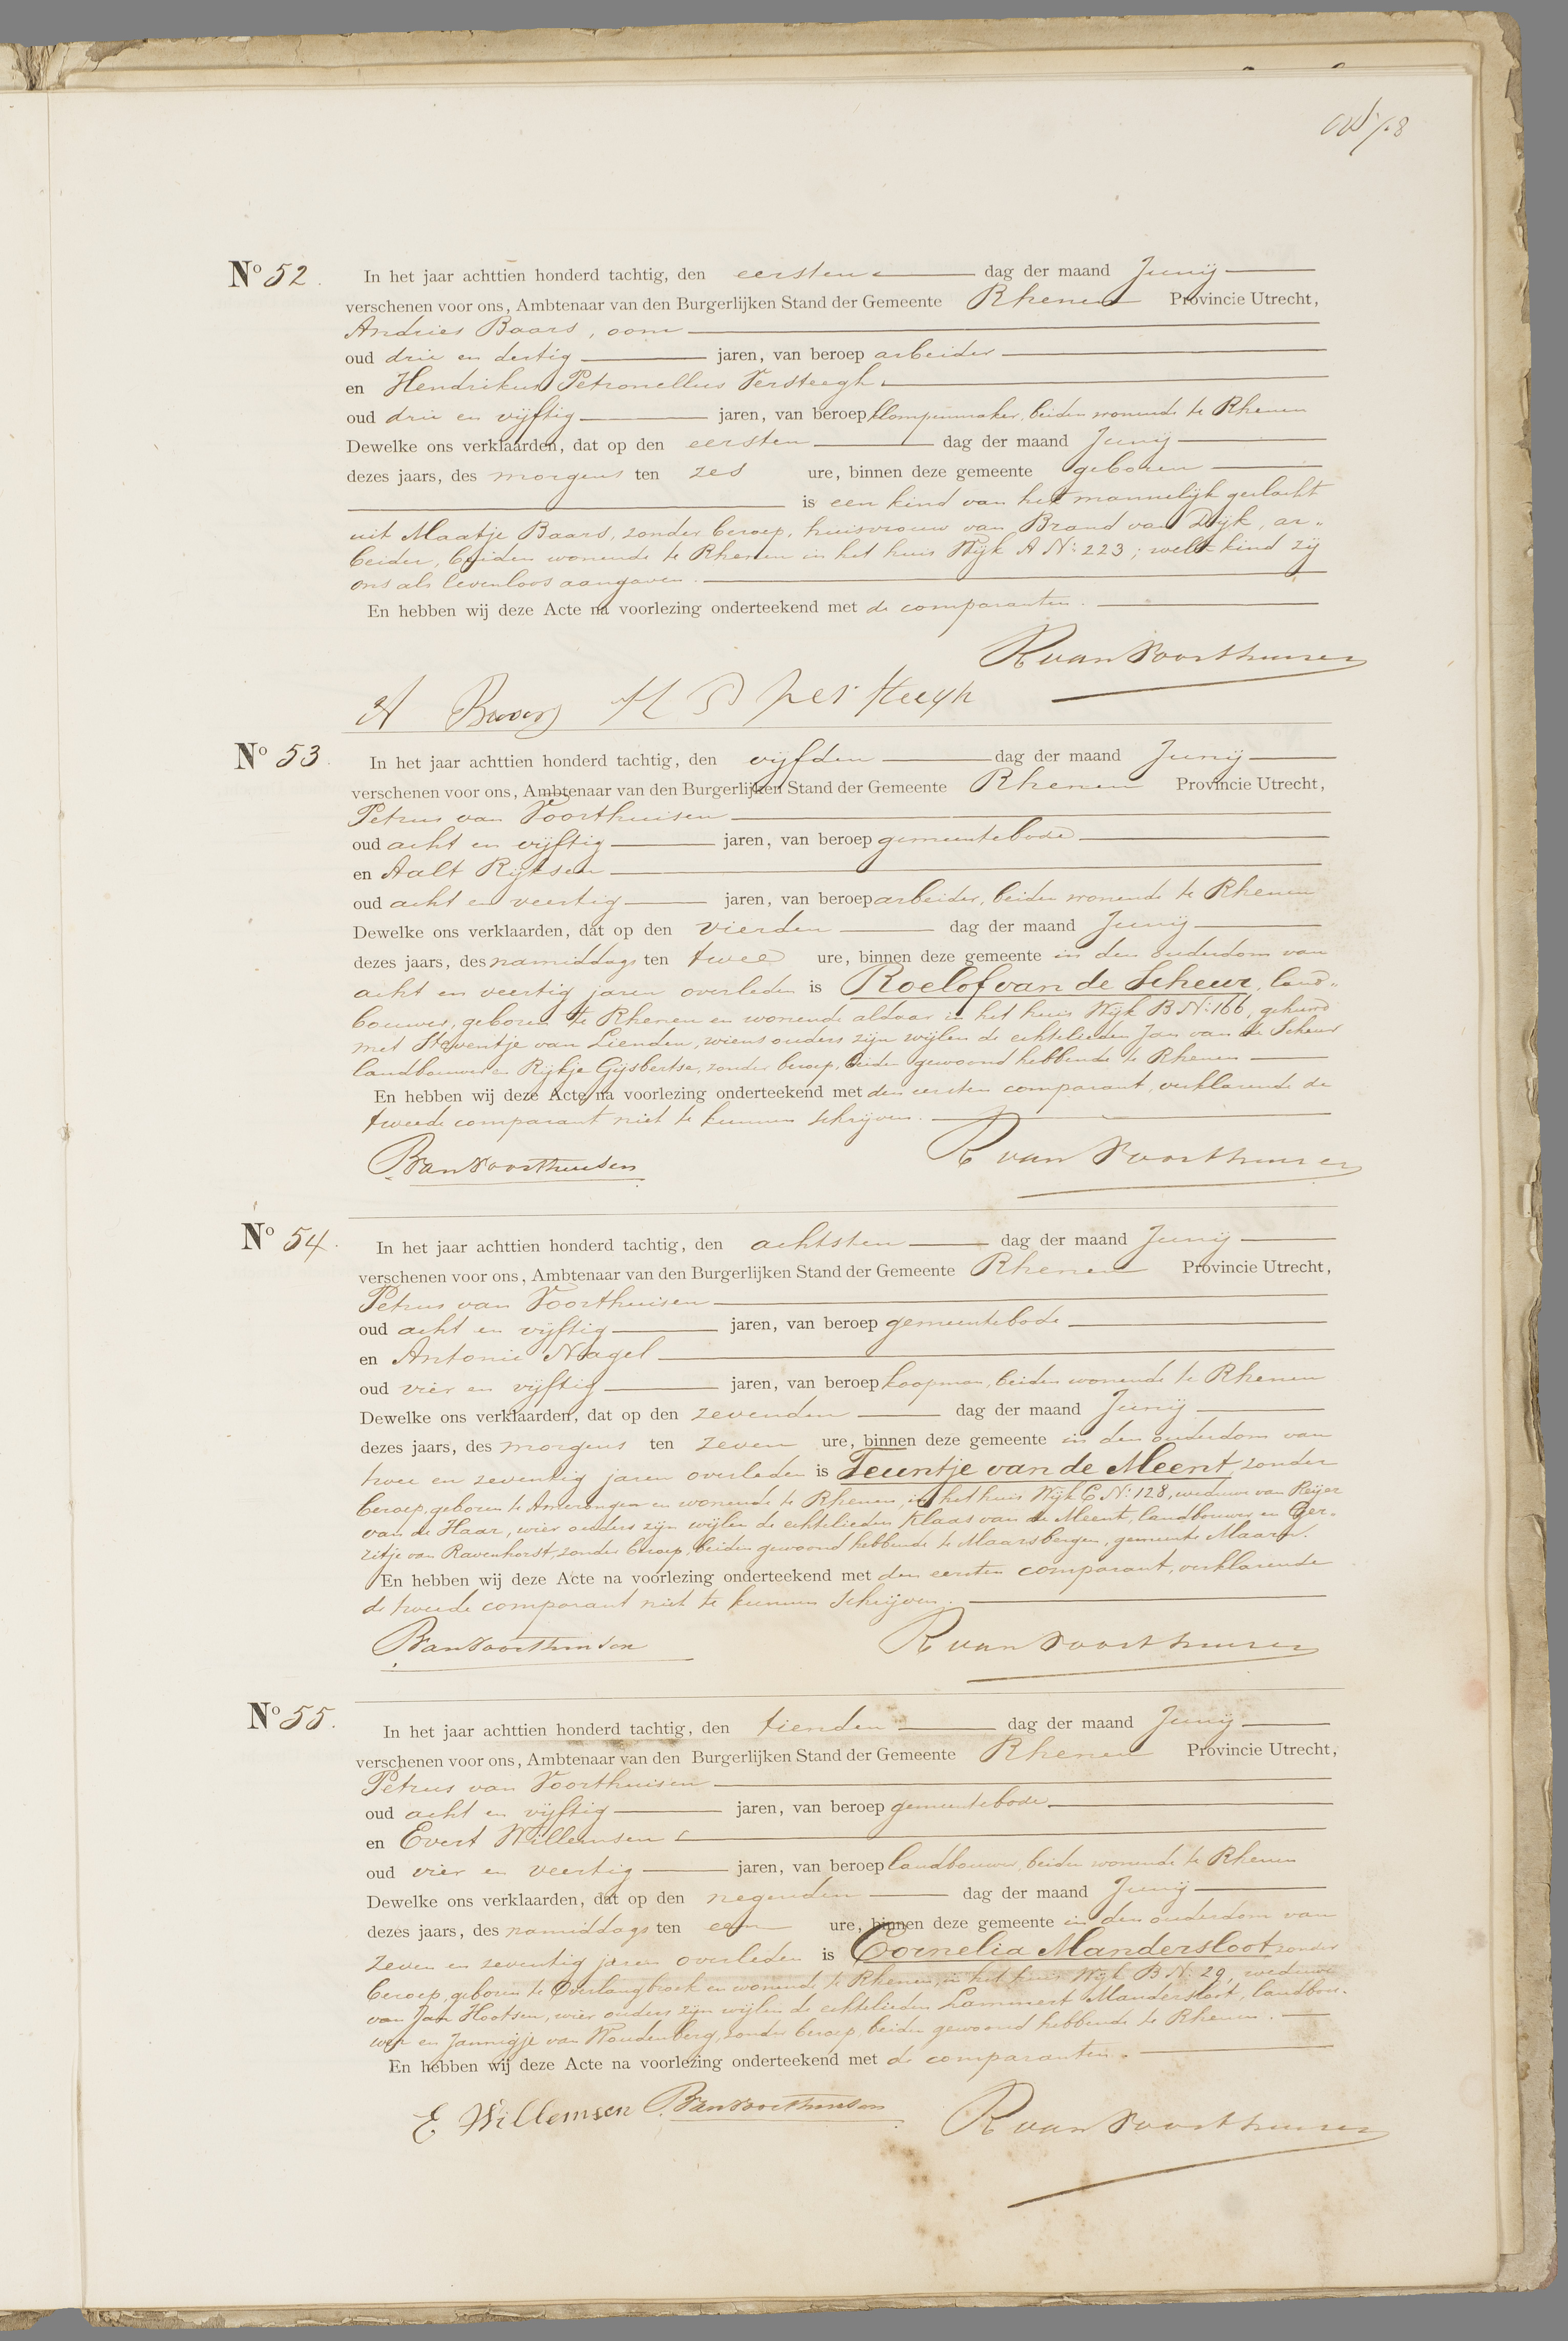 No 52. In het jaar achttien honderd tachtig, den eersten dag der maand Junij
verschenen voor ons, Ambtenaar van den Burgerlijken Stand der Gemeente Rhenen Provincie Utrecht,
Andries Baars, oom
oud drie en dertig jaren, van beroep arbeider
en Hendrikus Petronellus Versteegh
oud drie en vijftig jaren, van beroep klompenmaker, beiden wonende te Rhenen
Dewelke ons verklaarden, dat op den eersten dag der maand Junij
dezes jaars, des morgens ten zes ure, binnen deze gemeente geboren
is een kind van het mannelijk geslacht
uit Maatje Baars, zonder beroep, huisvrouw van Brand van Dijk, ar„
beider, beiden wonende te Rhenen in het huis Wijk A N: 223; welk kind zij
ons als levenloos aangaven.
En hebben wij deze Acte na voorlezing onderteekend met de comparanten.
R van Voorthuisen
A Baars H P versteegh
No 53. In het jaar achttien honderd tachtig, den vijfden dag der maand Junij
verschenen voor ons, Ambtenaar van den Burgerlijken Stand der Gemeente Rhenen Provincie Utrecht,
Petrus van Voorthuisen
oud acht en vijftig jaren, van beroep gemeentebode
en Aalt Rijksen
oud acht en veertig jaren, van beroep arbeider, beiden wonende te Rhenen
Dewelke ons verklaarden, dat op den vierden dag der maand Junij
dezes jaars, des namiddags ten twee ure, binnen deze gemeente in den ouderdom van
acht en veertig jaren overleden is Roelof van de Scheur, land„
bouwer, geboren te Rhenen en wonende aldaar in het huis Wijk B N: 166, gehuwd
met Steventje van Lienden, wiens ouders zijn wijlen de echtelieden Jan van de Scheur
landbouwer en Rijkje Gijsbertse, zonder beroep, beiden gewoond hebbende te Rhenen
En hebben wij deze Acte na voorlezing onderteekend met den eersten comparant, verklarende de
tweede comparant niet te kunnen schrijven.
P van Voorthuisen R van Voorthuisen
No 54. In het jaar achttien honderd tachtig, den achtsten dag der maand Junij
verschenen voor ons, Ambtenaar van den Burgerlijken Stand der Gemeente Rhenen Provincie Utrecht,
Petrus van Voorthuisen
oud acht en vijftig jaren, van beroep gemeentebode
en Antonie Nagel
oud vier en vijftig jaren, van beroep koopman, beiden wonende te Rhenen
Dewelke ons verklaarden, dat op den zevenden dag der maand Junij
dezes jaars, des morgens ten zeven ure, binnen deze gemeente in den ouderdom van
twee en zeventig jaren overleden is Teuntje van de Meent, zonder
beroep, geboren te Amerongen en wonende te Rhenen, in het huis Wijk C N: 128, weduwe van Reijer
van de Haar, wier ouders zijn wijlen de echtelieden Klaas van de Meent, landbouwer en Ger„
ritje van Ravenhorst, zonder beroep, beiden gewoond hebbende te Maarsbergen, gemeente Maarn.
En hebben wij deze Acte na voorlezing onderteekend met den eersten comparant, verklarende
de tweede comparant niet te kunnen schrijven.
P van Voorthuisen R van Voorthuisen
No 55. In het jaar achttien honderd tachtig, den tienden dag der maand Junij
verschenen voor ons, Ambtenaar van den Burgerlijken Stand der Gemeente Rhenen Provincie Utrecht,
Petrus van Voorthuisen
oud acht en vijftig jaren, van beroep gemeentebode
en Evert Willemsen
oud vier en veertig jaren, van beroep landbouwer, beiden wonende te Rhenen
Dewelke ons verklaarden, dat op den negenden dag der maand Junij
dezes jaars, des namiddags ten een ure, binnen deze gemeente in den ouderdom van
zeven en zeventig jaren overleden is Cornelia Mandersloot zonder
beroep, geboren te Overlangbroek en wonende te Rhenen, in het huis Wijk B N: 29, weduwe
van Jan Hootsen, wier ouders zijn wijlen de echtelieden Lammert Mandersloot, landbou„
wer en Jannigje van Woudenberg, zonder beroep, beiden gewoond hebbende te Rhenen.
En hebben wij deze Acte na voorlezing onderteekend met de comparanten.
E Willemsen P van Voorthuisen R van Voorthuisen